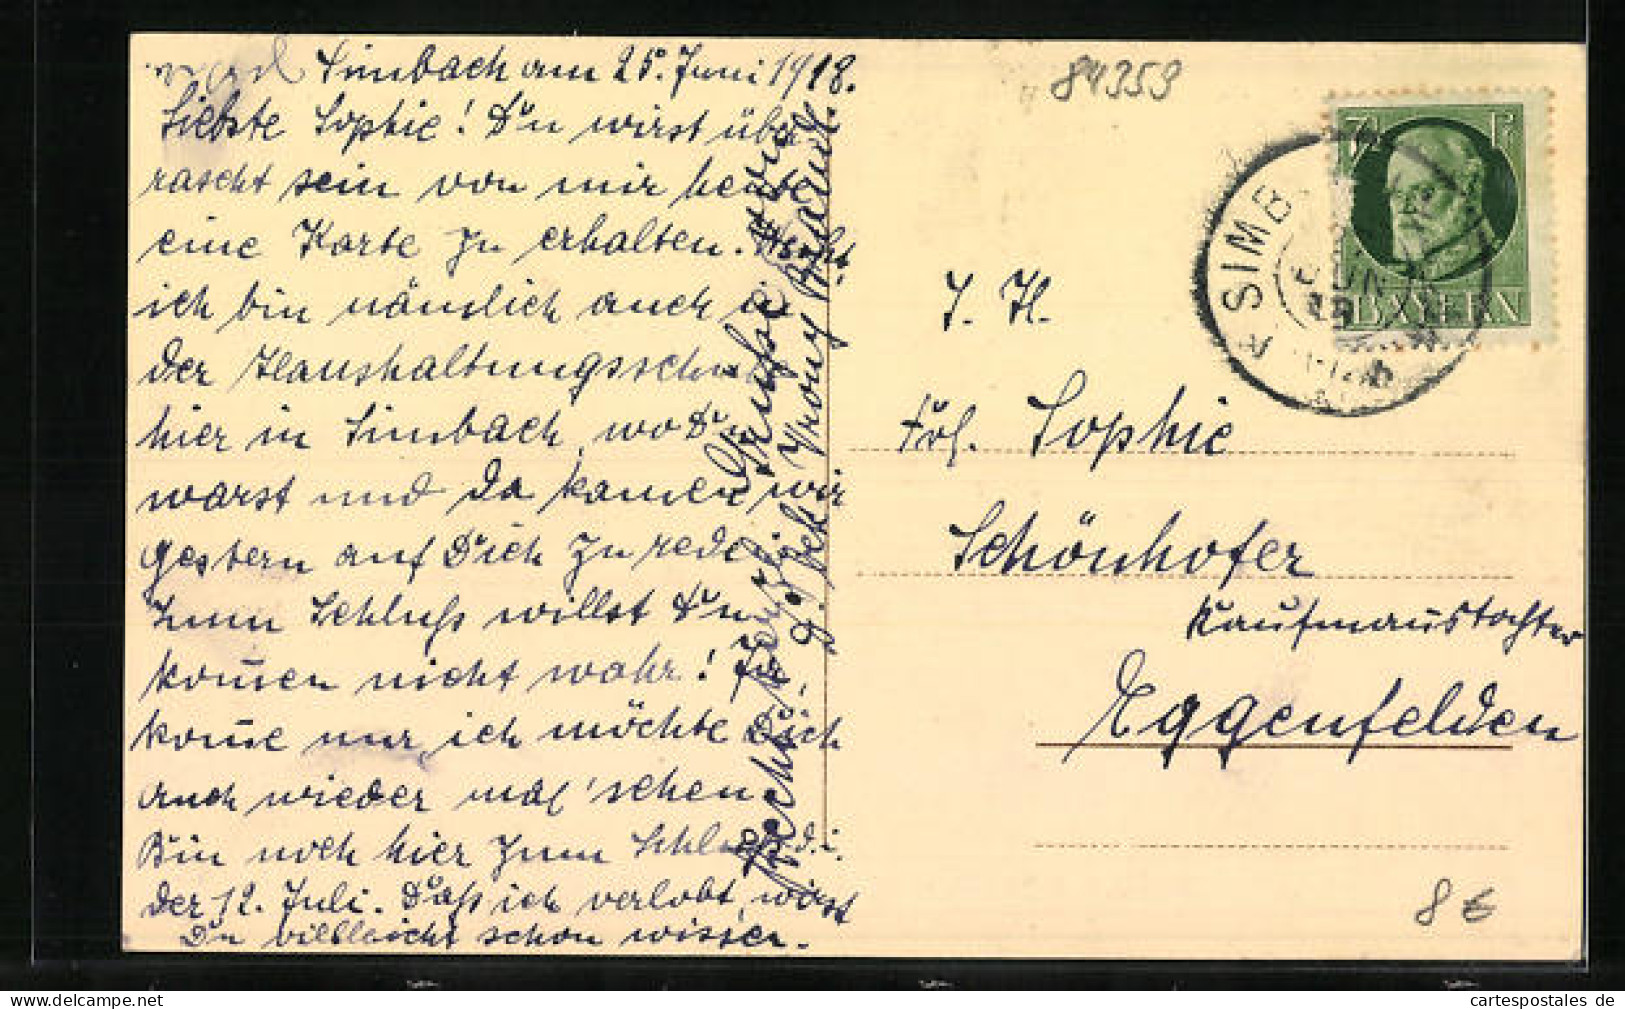 Simbach am 25. Juni 1918.
Liebste Sophie! Du wirst über
rascht sein von mir heute
eine Karte zu erhalten.
ich bin nämlich auch in
der Haushaltungsschule
hier in Simbach, wo Du
warst und da kamen wir
gestern auf Dich zu reden
Zum Schluß willst Du
kom̄en nicht wahr! Ja
kom̄e nur, ich möchte Dich
auch wieder mal sehen.
Bin noch hier zum Schluß d. i.
der 12. Juli. Daß ich verlobt, wirst
Du vielleicht schon wissen.
Herzl. Grüsse
Vrony
84359
7½ Pf
BAYERN
SIMB
JUN
18
Frl. Sophie
Schönhofer
Kaufmaustochter
Eggenfelden
8 €
cartespostales de